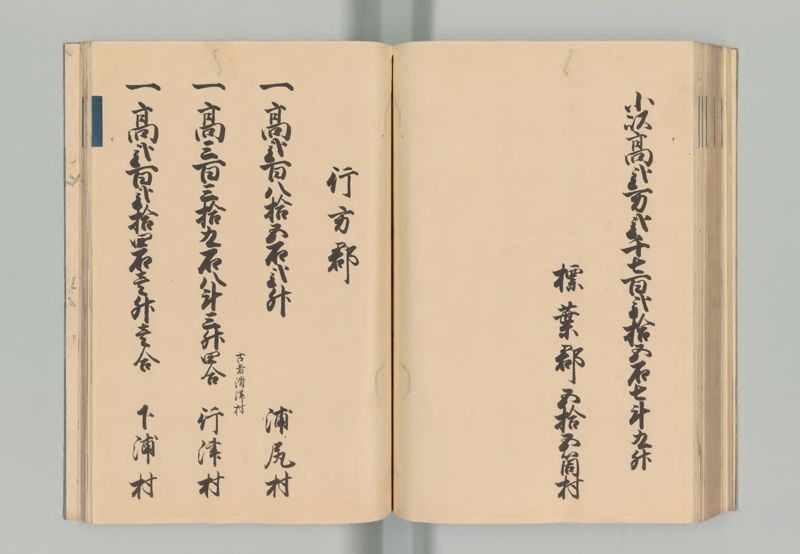 小以高弐万弐千七百弐拾五石七斗九升
標葉郡五拾五箇村
行方郡
一高弐百八拾五石弐升 浦尻村
古者滑津村
一高三百三拾九石八斗三升四合 行津村
一高弐百弐拾四石壱升壱合 下浦村